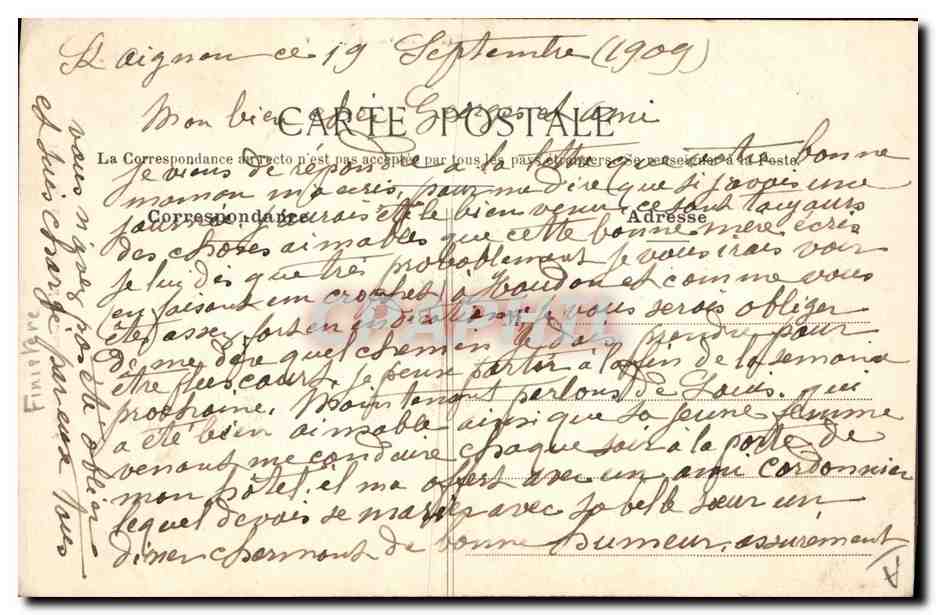 St aignan ce 19 Septembre (1909)
Mon bien cher Georges et ami
CARTE POSTALE
La Correspondance au recto n'est pas acceptée par tous les pays étrangers. Se renseigner à la Poste.
Correspondance
Adresse
je viens de répondre a la lettre que votre bonne
maman m'a écris, pour me dire que si j'avais une
journée, j'aurais été le bien venu, ce sont toujours
des choses aimables que cette bonne mère écris
je lui dis que très probablement je vous irais voir
en faisant un crochet à Houdon et comme vous
êtes assez fort en indications je vous serais obliger
de me dire quel chemin je dois prendre pour
être plus court, je peux partir à la fin de la semaine
prochaine. Maintenant parlons de Louis, qui
a été bien aimable ainsi que sa jeune femme
venant me conduire chaque soir à la porte de
mon hôtel, il m'a offert avec un ami cordonnier
lequel devais se marier avec sa belle sœur un
diner charmant de bonne humeur, assurément
vous n'avez pas été oblier
et suis chargé par eux tous
Finistère
CPAPHIL
A